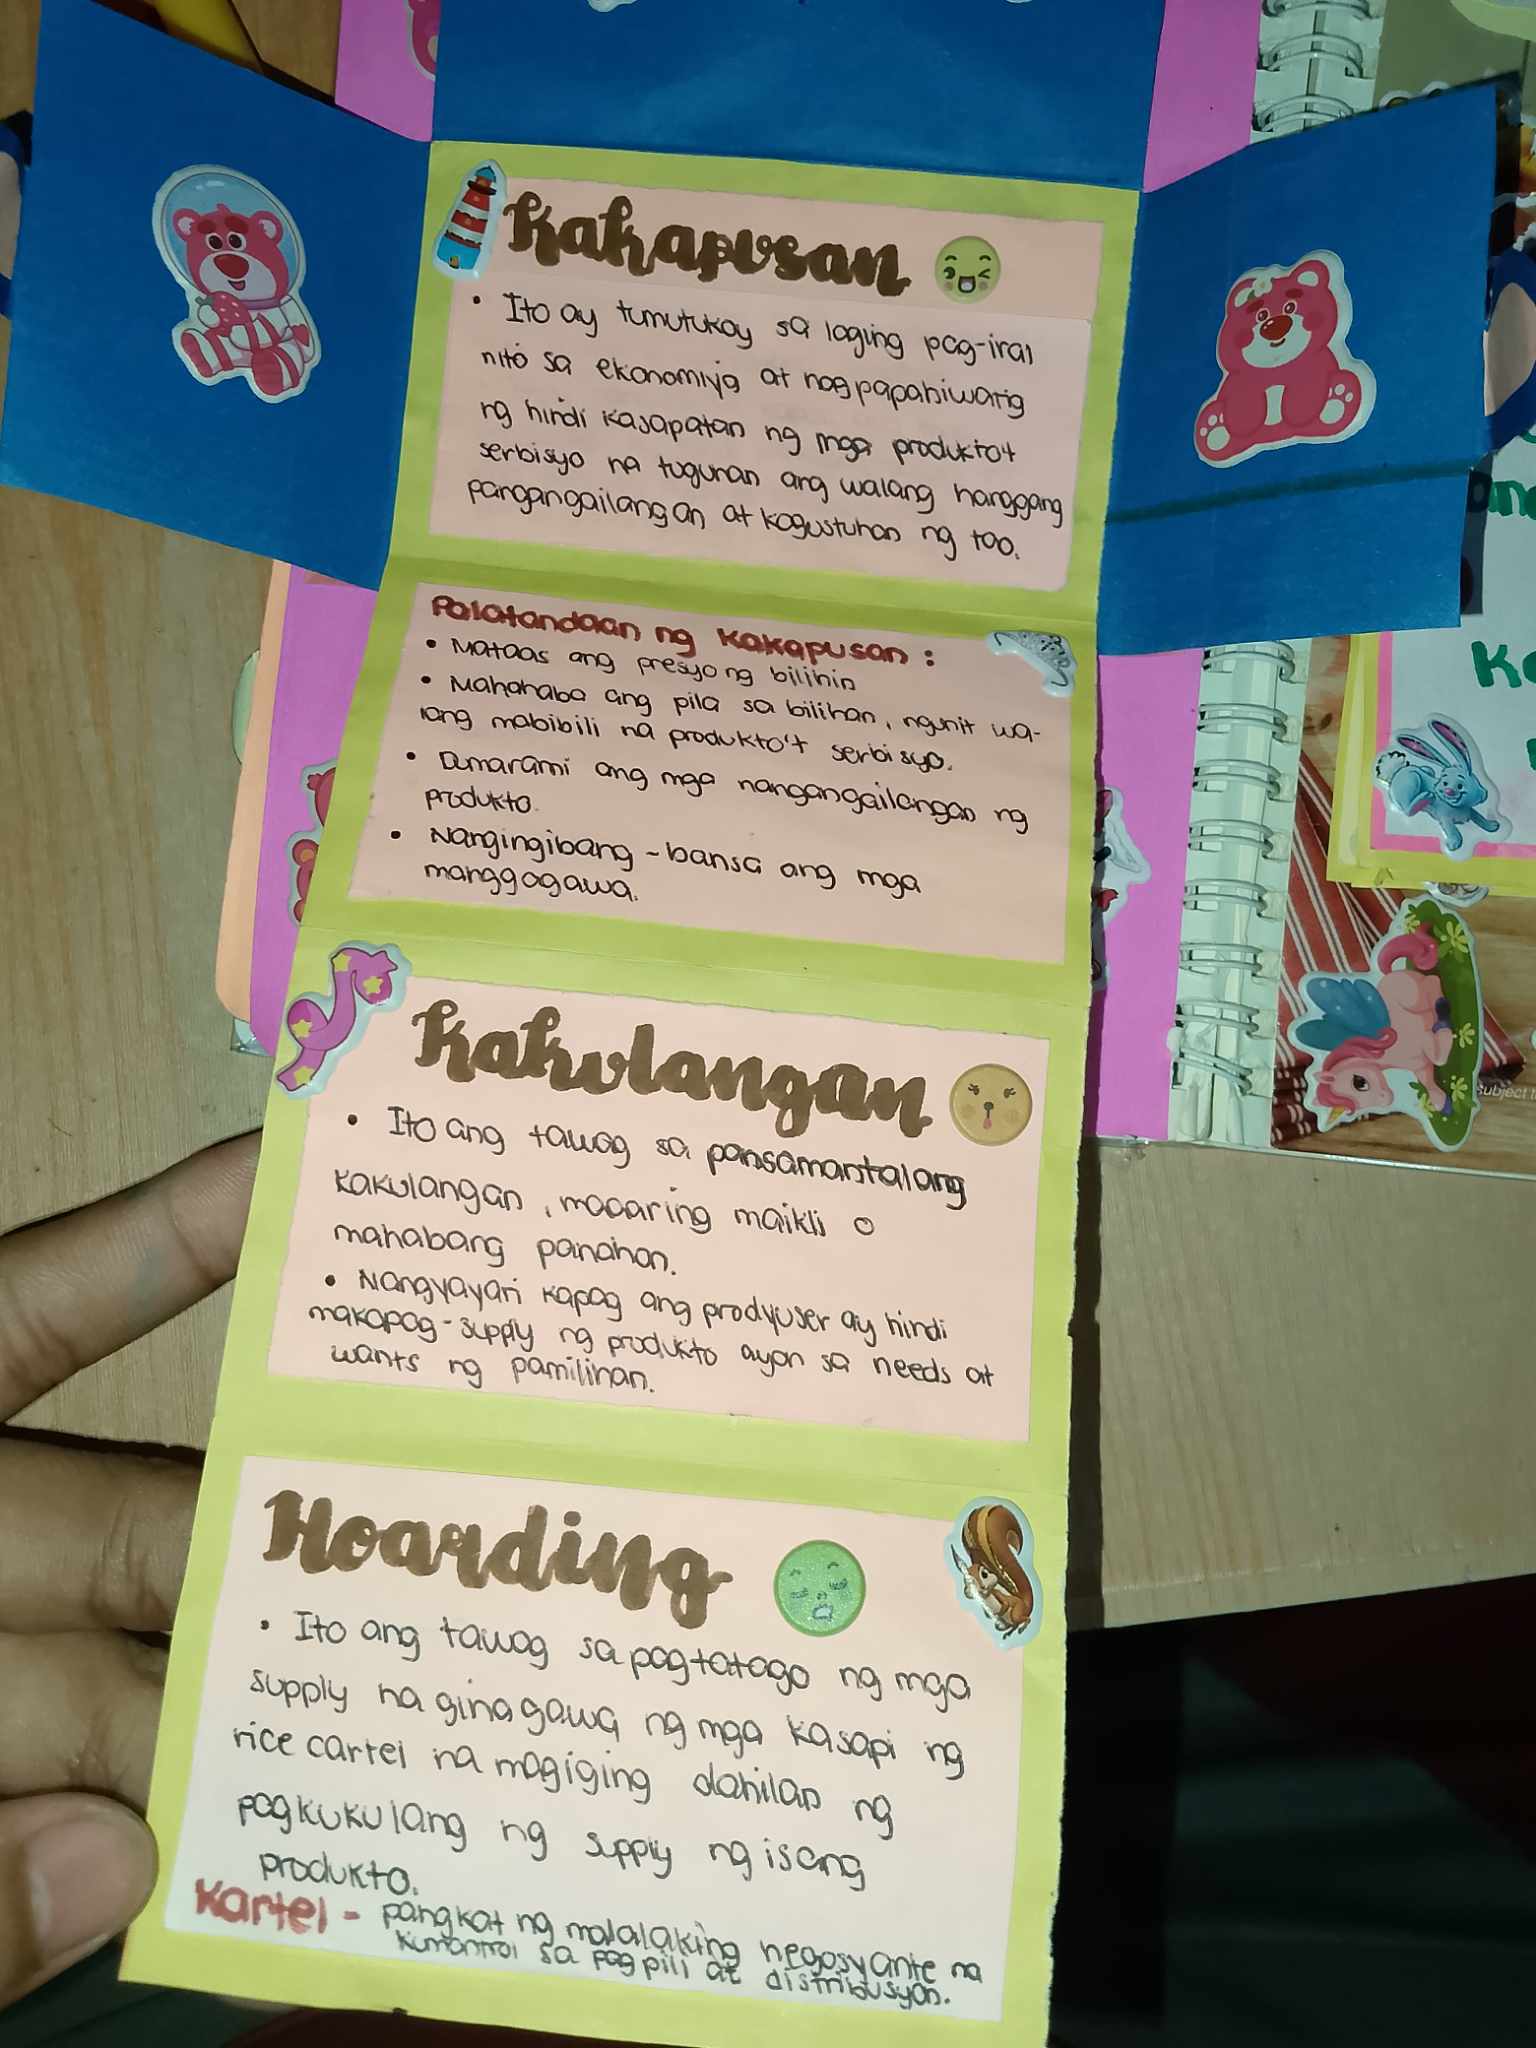 Kakapusan
• Ito ay tumutukoy sa laging pag-iral
nito sa ekonomiya at nagpapahiwatig
ng hindi kasapatan ng mga produkto't
serbisyo na tugunan ang walang hanggang
pangangailangan at kagustuhan ng tao.
Palatandaan ng Kakapusan :
• Mataas ang presyo ng bilihin
• Mahahaba ang pila sa bilihan, ngunit wa-
lang mabibili na produkto't serbisyo.
• Dumarami ang mga nangangailangan ng
produkto.
• Nangingibang-bansa ang mga
manggagawa.
Kakulangan
• Ito ang tawag sa pansamantalang
kakulangan, maaaring maikli o
mahabang panahon.
• Nangyayari kapag ang prodyuser ay hindi
makapag-supply ng produkto ayon sa needs at
wants ng pamilihan.
Hoarding
• Ito ang tawag sa pagtatago ng mga
supply na ginagawa ng mga kasapi ng
rice cartel na magiging dahilan ng
pagkukulang ng supply ng isang
produkto.
Kartel - pangkat ng malalaking negosyante na
kumontrol sa pagpili at distribusyon.
subject